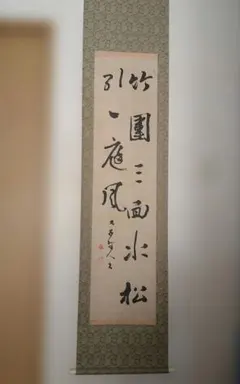 竹圍三面水松
引一庭風